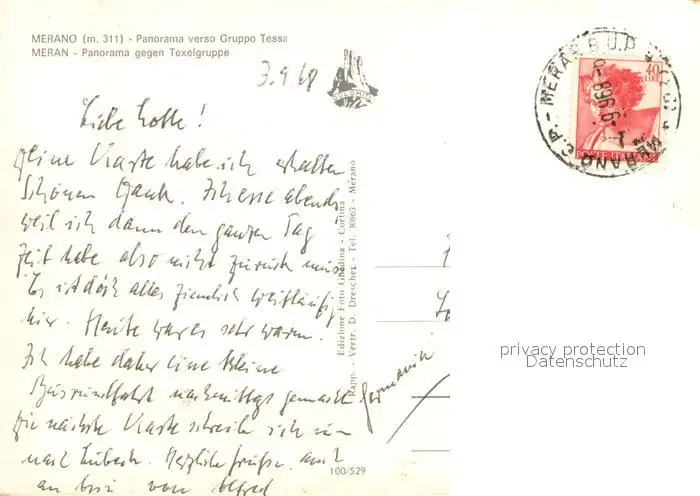 MERANO (m. 311) - Panorama verso Gruppo Tessa
MERAN - Panorama gegen Texelgruppe
3.9.68
Liebe Lotte!
Deine Karte habe ich erhalten
Schönen Dank. Ich esse abends
weil ich dann den ganzen Tag
Zeit habe also nicht zurück muss
Es ist doch alles ziemlich weitläufig
hier. Heute war es sehr warm.
Ich habe daher eine kleine
Busrundfahrt nachmittags gemacht
Die nächste Karte schreibe ich
nach Lübeck. Herzliche Grüße auch
an von Alfred
Germania
Edizione Foto Ghedina - Cortina
Rapp. - Vertr. D. Drescher - Tel. 30863 - Merano
100/529
40
LIRE
POSTE ITALIANE
MERANO C.P. - MERAN B.U.P.
privacy protection
Datenschutz